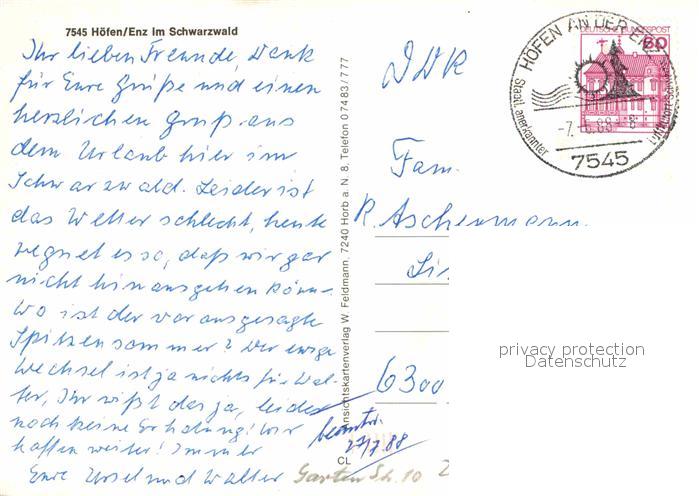 7545 Höfen/Enz im Schwarzwald
Ihr lieben Freunde, Dank
für Eure Grüße und einen
herzlichen Gruß aus
dem Urlaub hier im
Schwarzwald. Leider ist
das Wetter schlecht, heute
regnet es so, daß wir gar
nicht hinausgehen könn-
Wo ist der vorausgesagte
Spitzensommer? Der ewige
Wechsel ist ja nichts für Wal-
ter, Ihr wißt das ja, leider
noch keine Erholung! Wir
hoffen weiter! Immer
Eure Ursel und Walter
Ansichtskartenverlag W. Feldmann, 7240 Horb a. N. 8, Telefon 07483/777
CL
DDR
Fam.
R. Aschermann
6300
beantw.
27/7.88
Garten Str. 10
HÖFEN AN DER ENZ
Staatl. anerkannter
-7.-6.88-8
7545
DEUTSCHE BUNDESPOST
60
privacy protection
Datenschutz